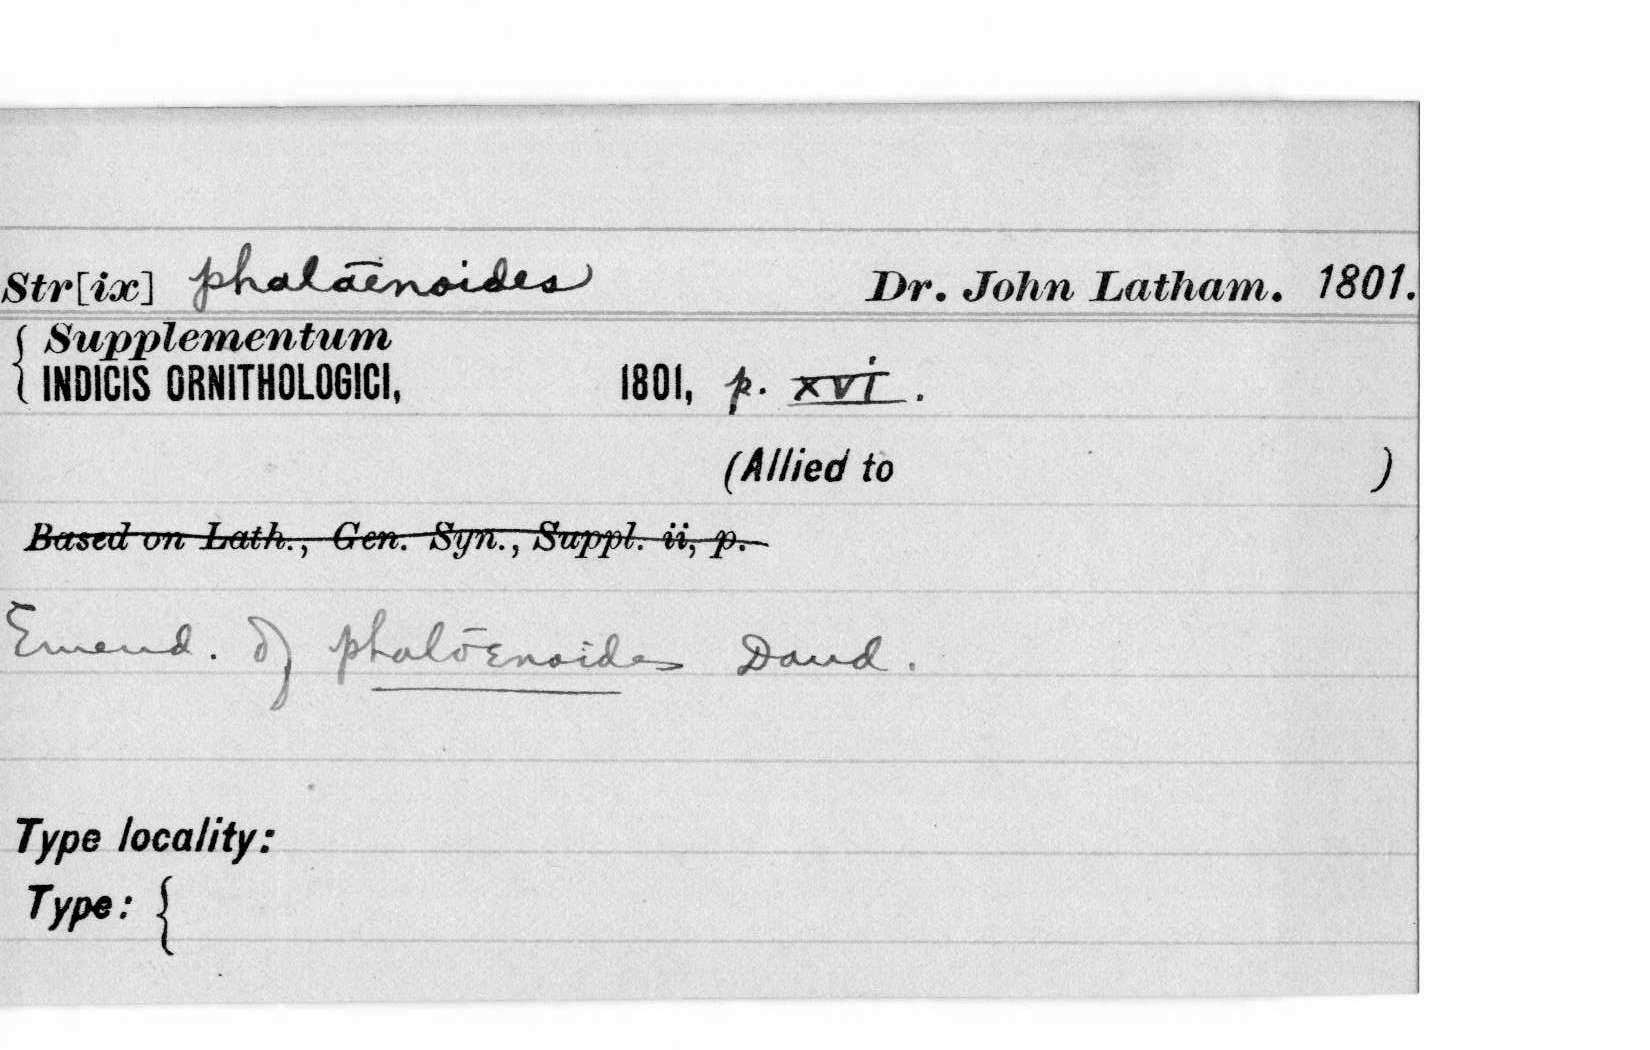 Str[ix] phalāenoides Dr. John Latham. 1801.
{ Supplementum
INDICIS ORNITHOLOGICI, 1801, p. xvi.
(Allied to )
Based on Lath., Gen. Syn., Suppl. ii, p.
Emend. of phalōenoides Daud.
Type locality:
Type: {